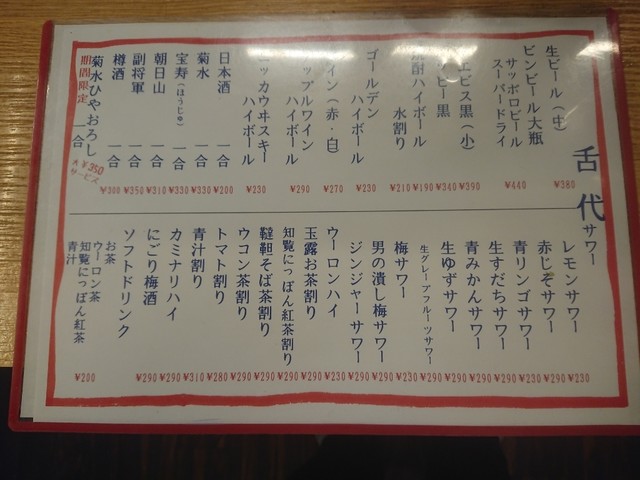 舌代
生ビール（中） ¥380
ビンビール大瓶
サッポロビール
スーパードライ ¥440
エビス黒（小） ¥390
ビー黒 ¥340
酎ハイボール ¥190
水割り ¥210
ゴールデン
ハイボール ¥230
イン（赤・白） ¥270
ップルワイン
ハイボール ¥290
ッカウヰスキー
ハイボール ¥230
日本酒 一合 ¥200
菊水 一合 ¥330
宝寿（ほうじゅ） 一合 ¥330
朝日山 一合 ¥310
副将軍 一合 ¥250
樽酒 一合 ¥300
期間限定
菊水ひやおろし 一合
¥350
サービス
サワー
レモンサワー ¥230
赤じそサワー ¥290
青リンゴサワー ¥230
生すだちサワー ¥290
青みかんサワー ¥290
生ゆずサワー ¥290
生グレープフルーツサワー ¥290
梅サワー ¥230
男の潰し梅サワー ¥290
ジンジャーサワー ¥290
ウーロンハイ ¥230
玉露お茶割り ¥290
知覧にっぽん紅茶割り ¥290
韃靼そば茶割り ¥290
ウコン茶割り ¥290
トマト割り ¥280
青汁割り ¥310
カミナリハイ ¥290
にごり梅酒 ¥290
ソフトドリンク
お茶
ウーロン茶
知覧にっぽん紅茶
青汁 ¥200